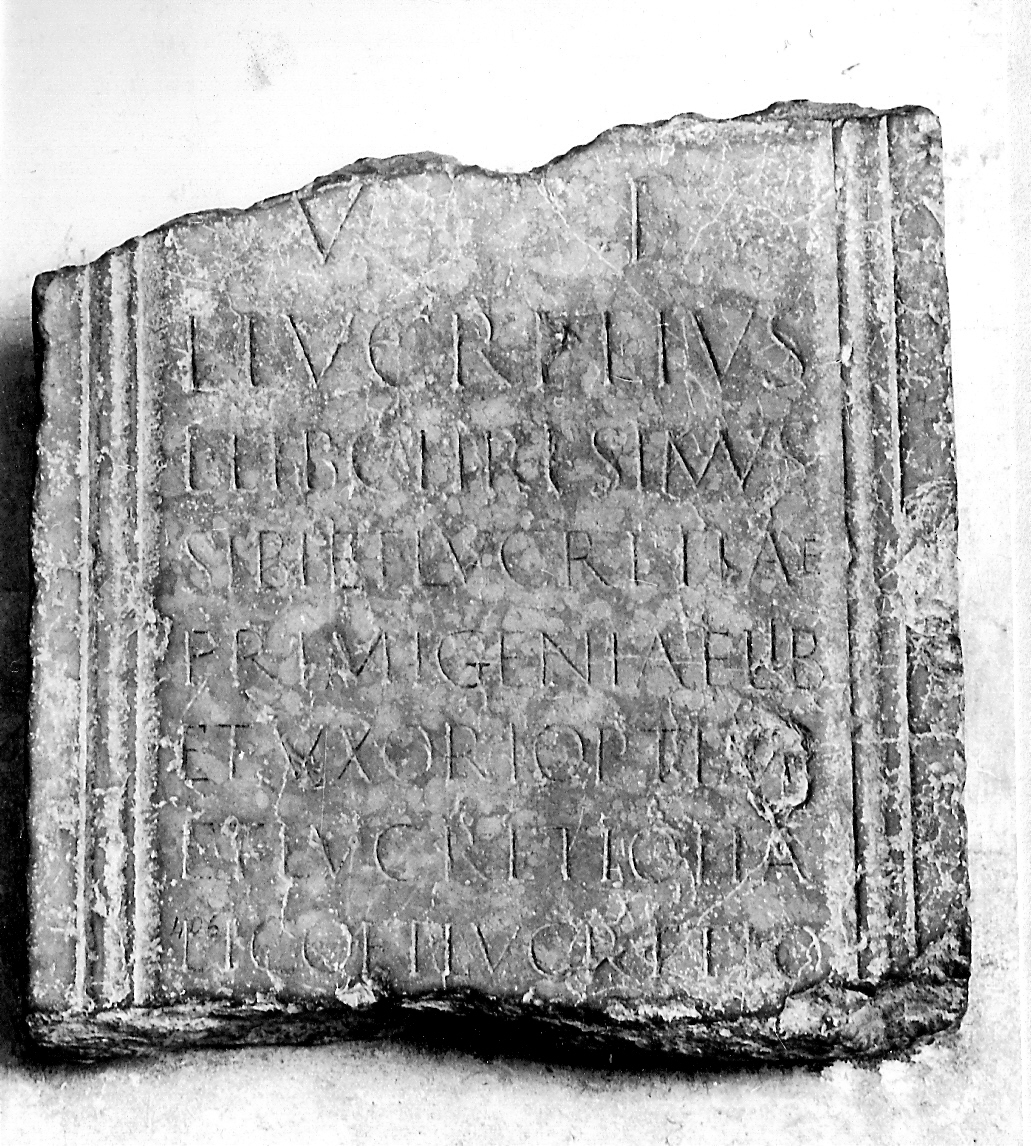 V
L LVCRETIVS
L LIB CHRESIMVS
SIBI ET LVCRETIAE
PRIMIGENIAE LIB
ET VXORI OPTIM
ET LVCRETIO ITA
LICO ET LVCRETIO